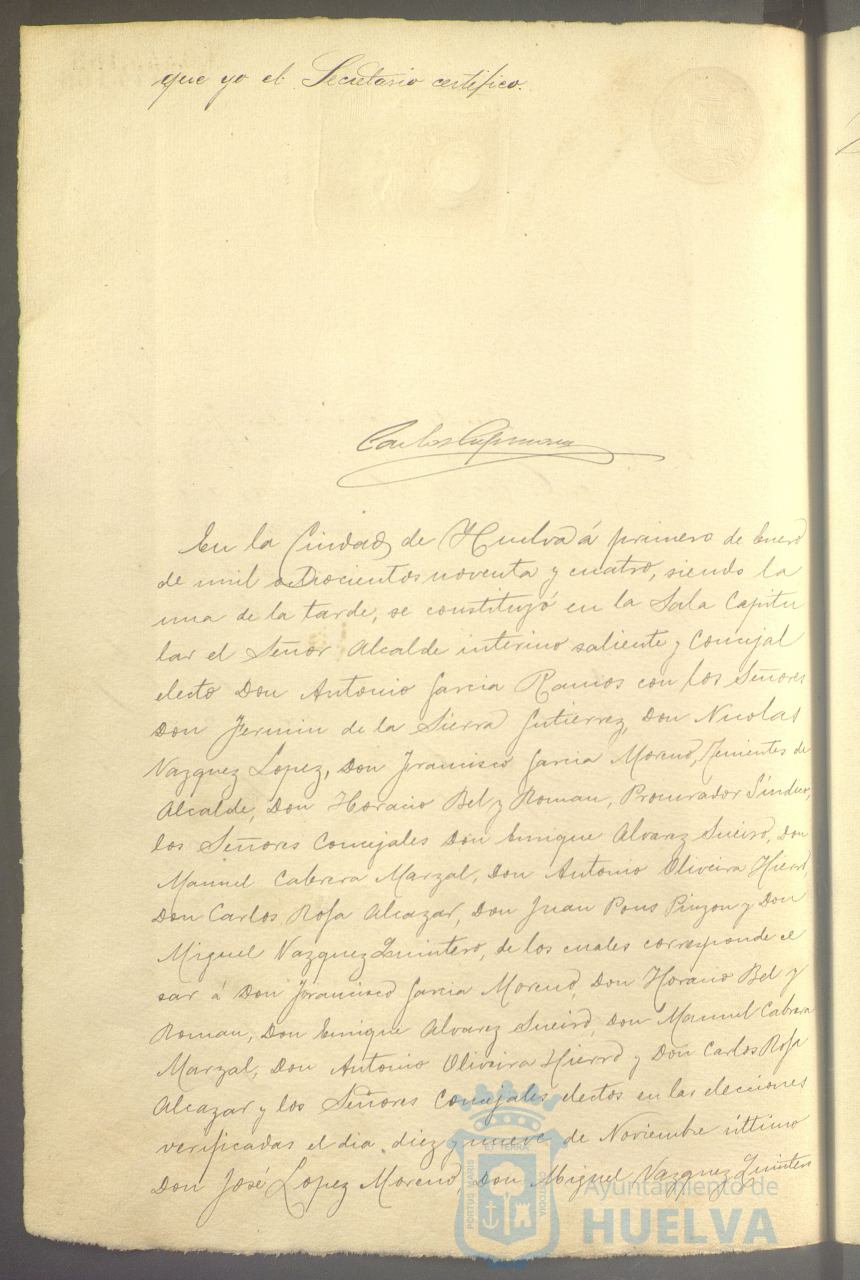 que yo el Secretario certifico.
En la Ciudad de Huelva á primero de Enero
de mil ochocientos noventa y cuatro, siendo la
una de la tarde, se constituyó en la Sala Capitu
lar el Señor Alcalde interino saliente y Concejal
electo Don Antonio Garcia Ramos con los Señores
Don Fermin de la Sierra Gutierrez, Don Nicolas
Vazquez Lopez, Don Francisco Garcia Moreno, Tenientes de
Alcalde, Don Horacio Bel y Roman, Procurador Síndico,
los Señores Concejales Don Enrique Alvarez Sueiro, Don
Manuel Cabrera Marzal, Don Antonio Oliveira Hierro,
Don Carlos Rofa Alcazar, Don Juan Pons Pinzon y Don
Miguel Vazquez Quintero, de los cuales corresponde ce
sar á Don Francisco Garcia Moreno, Don Horacio Bel y
Roman, Don Enrique Alvarez Sueiro, Don Manuel Cabrera
Marzal, Don Antonio Oliveira Hierro y Don Carlos Rofa
Alcazar y los Señores Concejales electos en las elecciones
verificadas el dia diez y nueve de Noviembre último
Don José Lopez Moreno, Don Miguel Vazquez Quintero
PORTUS MARIS
ET TERRÆ
CUSTODIA
Ayuntamiento de
HUELVA